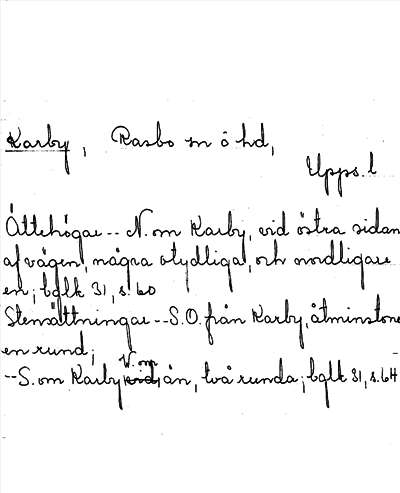 Karby, Rasbo sn o hd,
Upps. l
Ättehögar -- N. om Karby, vid östra sidan
af vägen, några otydliga, och nordligare
en; bglk 31, s. 60
Stensättningar -- S.O. från Karby, åtminstone
en rund;
V. om
-- S. om Karby vid ån, två runda; bglk 31, s. 64